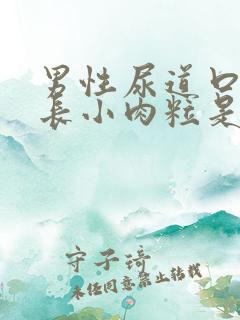 男性尿道口
长小肉粒是
守子琦
未经同意禁止转载